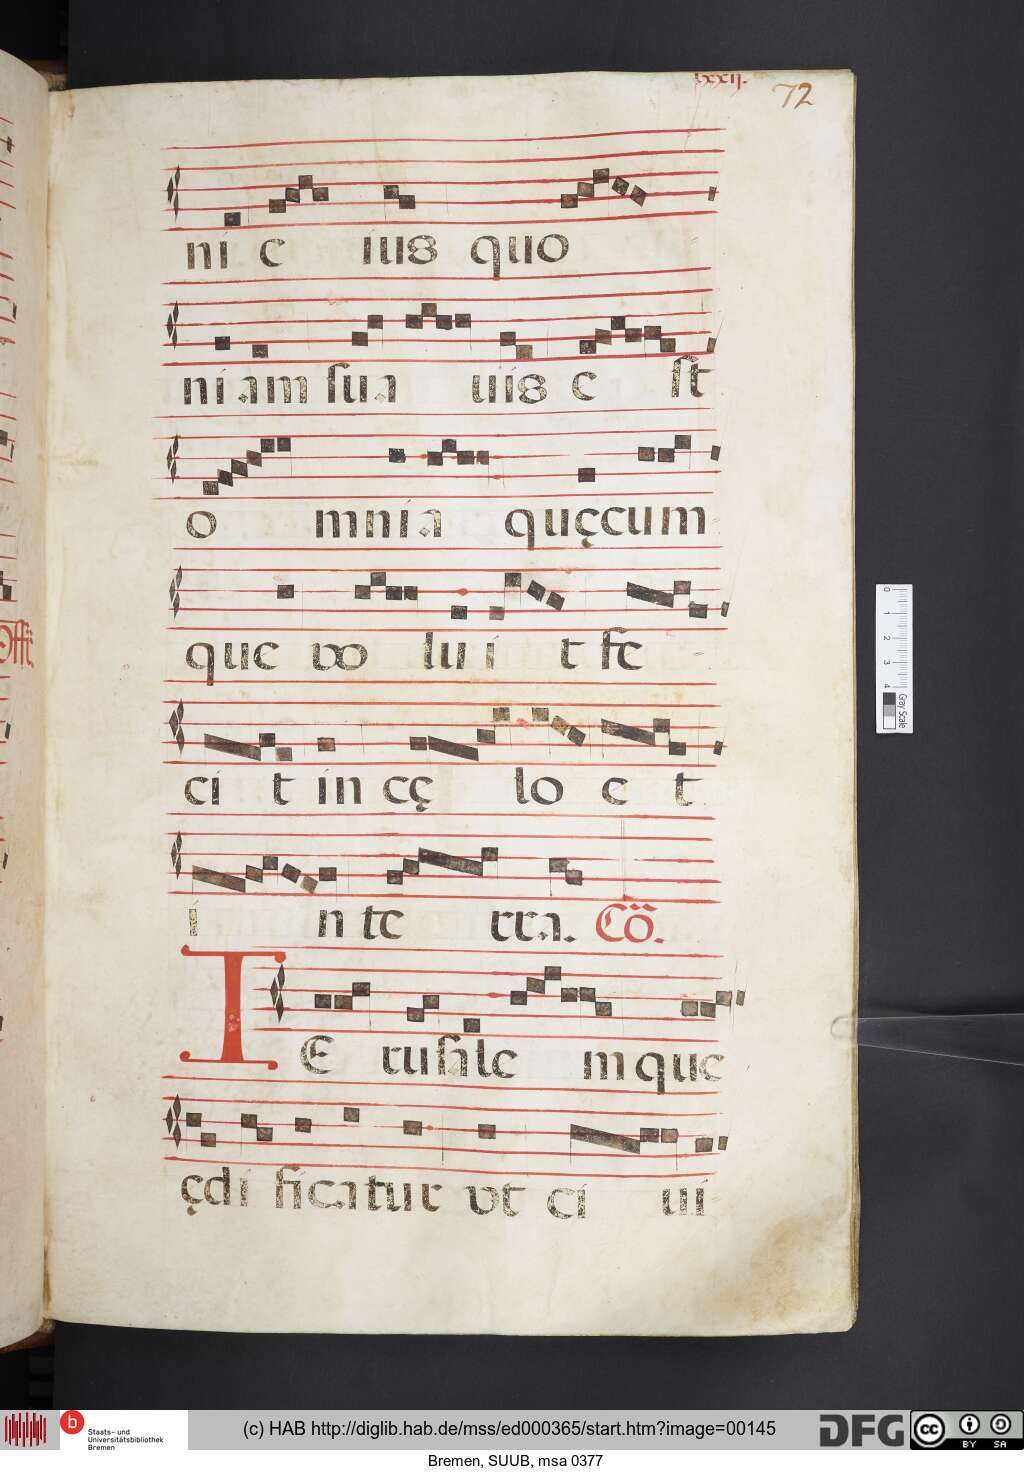 lxxii.
72
ni e ius quo
niam sua uis e st
o mnia quęcum
que vo lui t fe
ci t in cę lo e t
i n te rra. Cō.
IE rusale mque
ędi ficatur vt ci ui
Off
0 1 2 3 4
Gray Scale
b
Staats- und
Universitätsbibliothek
Bremen
(c) HAB http://diglib.hab.de/mss/ed000365/start.htm?image=00145
DFG
cc
BY SA
Bremen, SUUB, msa 0377